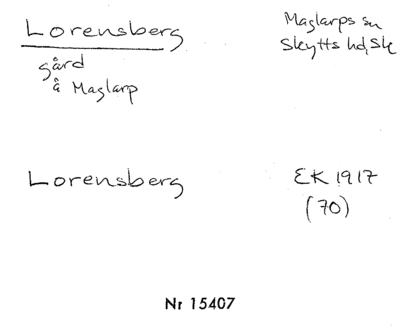 Lorensberg
gård
å Maglarp
Maglarps sn
Skytts hd, Sk
Lorensberg
EK 1917
(70)
Nr 15407